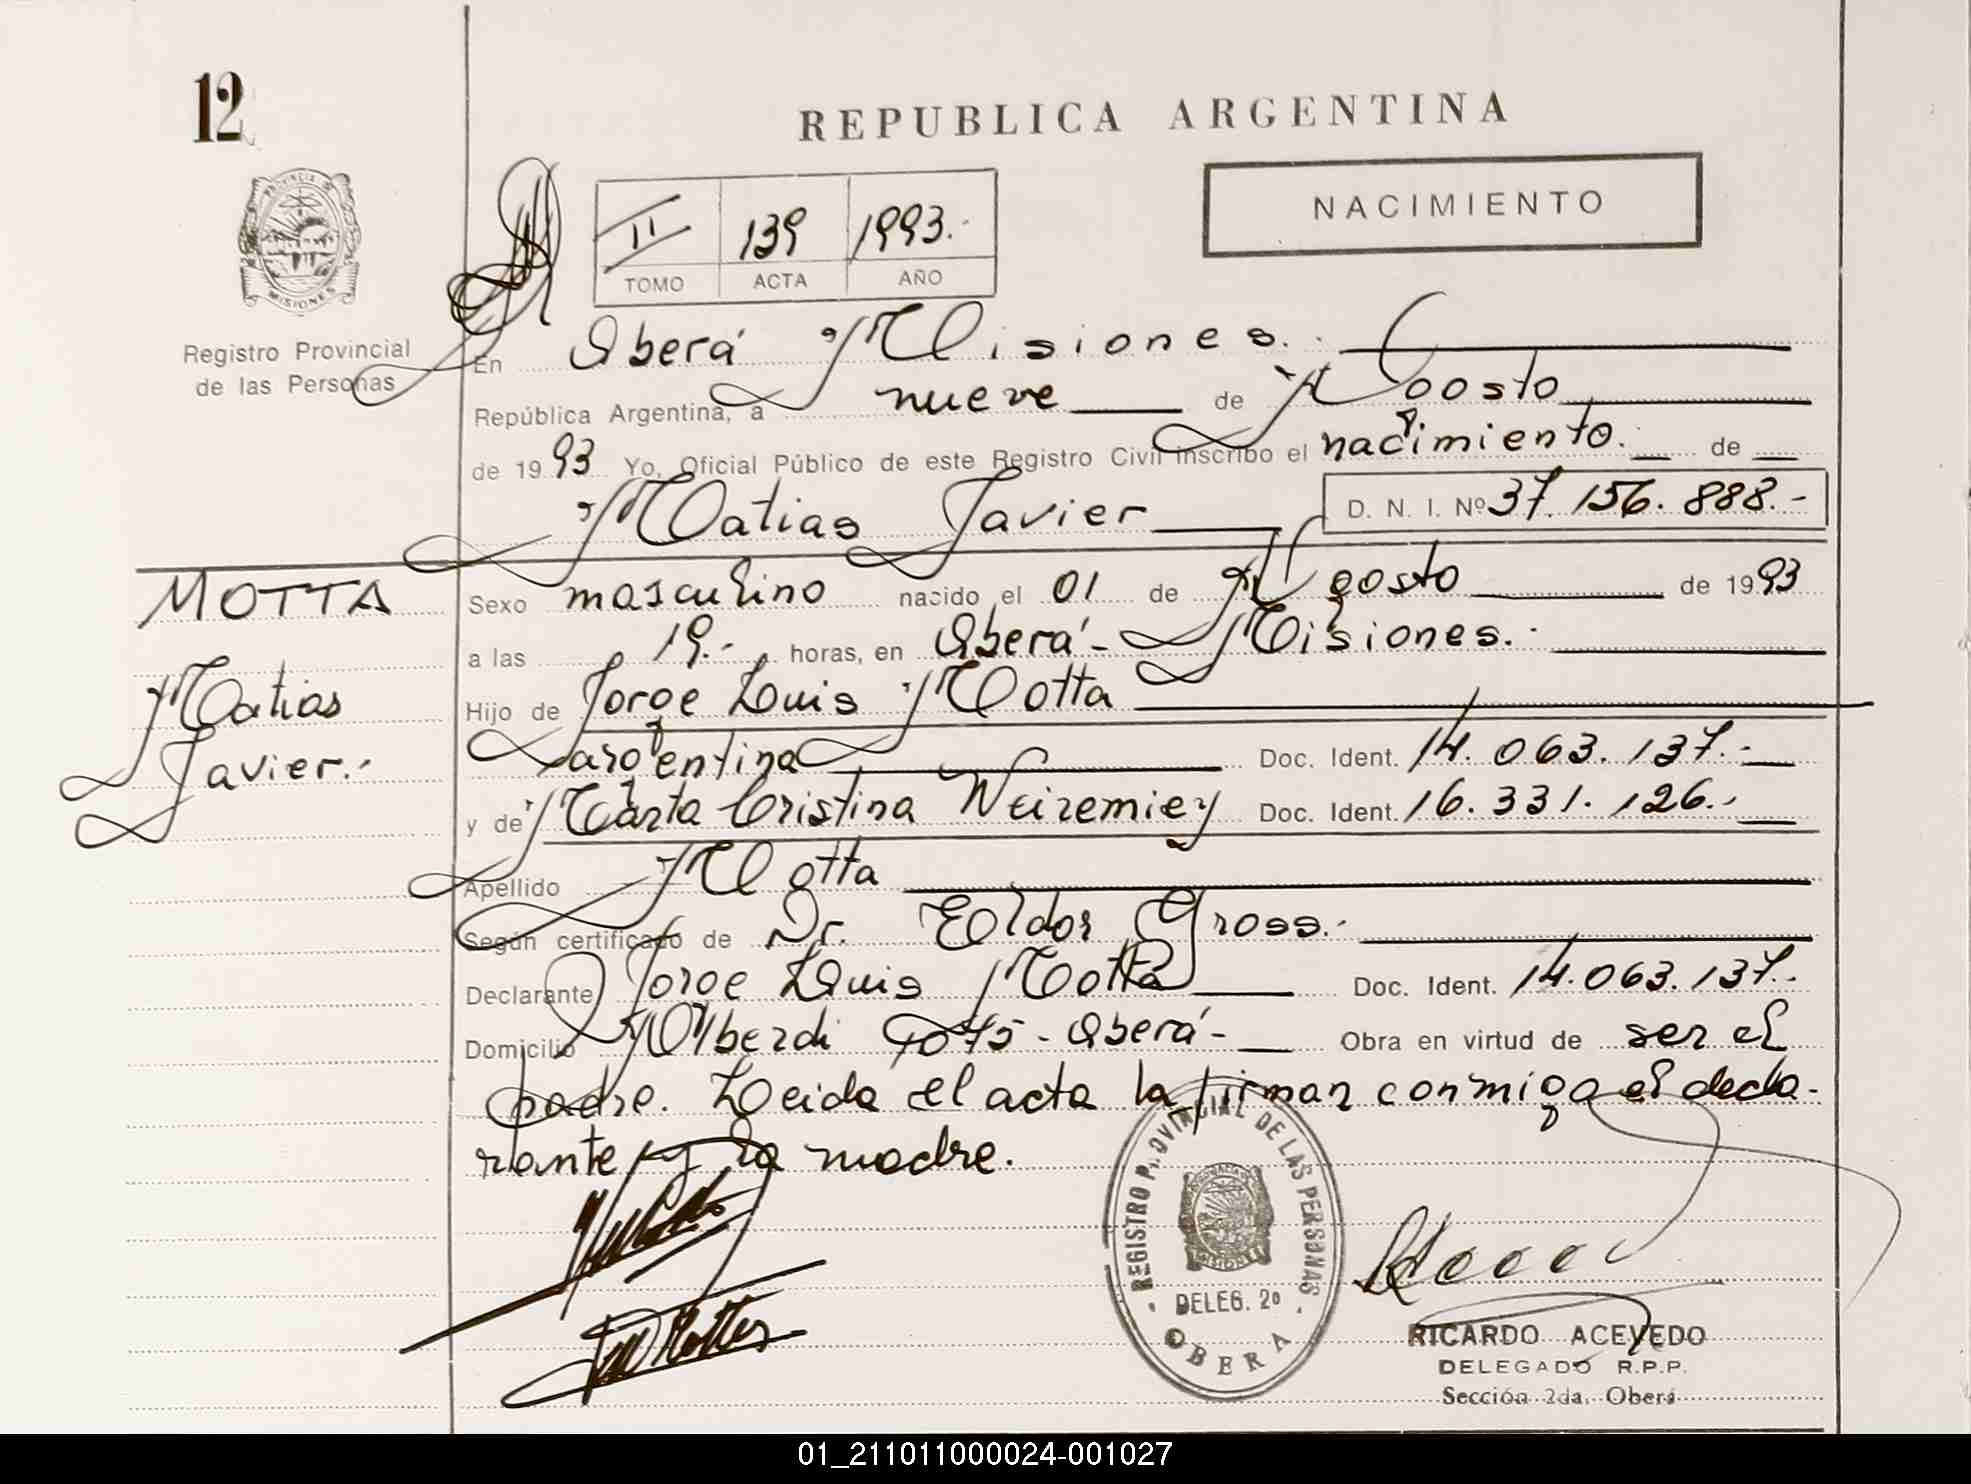 12
REPUBLICA ARGENTINA
PROVINCIA DE
MISIONES
Registro Provincial
de las Personas
II 139 1993.-
TOMO ACTA AÑO
NACIMIENTO
En Oberá Misiones.
República Argentina, a nueve de Agosto
de 1993 Yo, Oficial Público de este Registro Civil inscribo el nacimiento. de
Matias Javier D. N. I. Nº 37.156.888.-
MOTTA
Matias
Javier.-
Sexo masculino nacido el 01 de Agosto de 1993
a las 19.- horas, en Oberá - Misiones.-
Hijo de Jorge Luis Motta
argentina Doc. Ident. 14.063.137.-
y de Marta Cristina Weiremiey Doc. Ident. 16.331.126.-
Apellido Motta
Según certificado de Dr. Eldor Gross.-
Declarante Jorge Luis Motta Doc. Ident. 14.063.137.-
Domicilio Alberdi - Oberá - Obra en virtud de ser el
padre. Leida el acta la firman conmigo el decla-
rante y la madre.
REGISTRO PROVINCIAL DE LAS PERSONAS
MISIONES
DELEG. 2º
OBERA
RICARDO ACEVEDO
DELEGADO R.P.P.
Sección 2da. Oberá
01_211011000024-001027